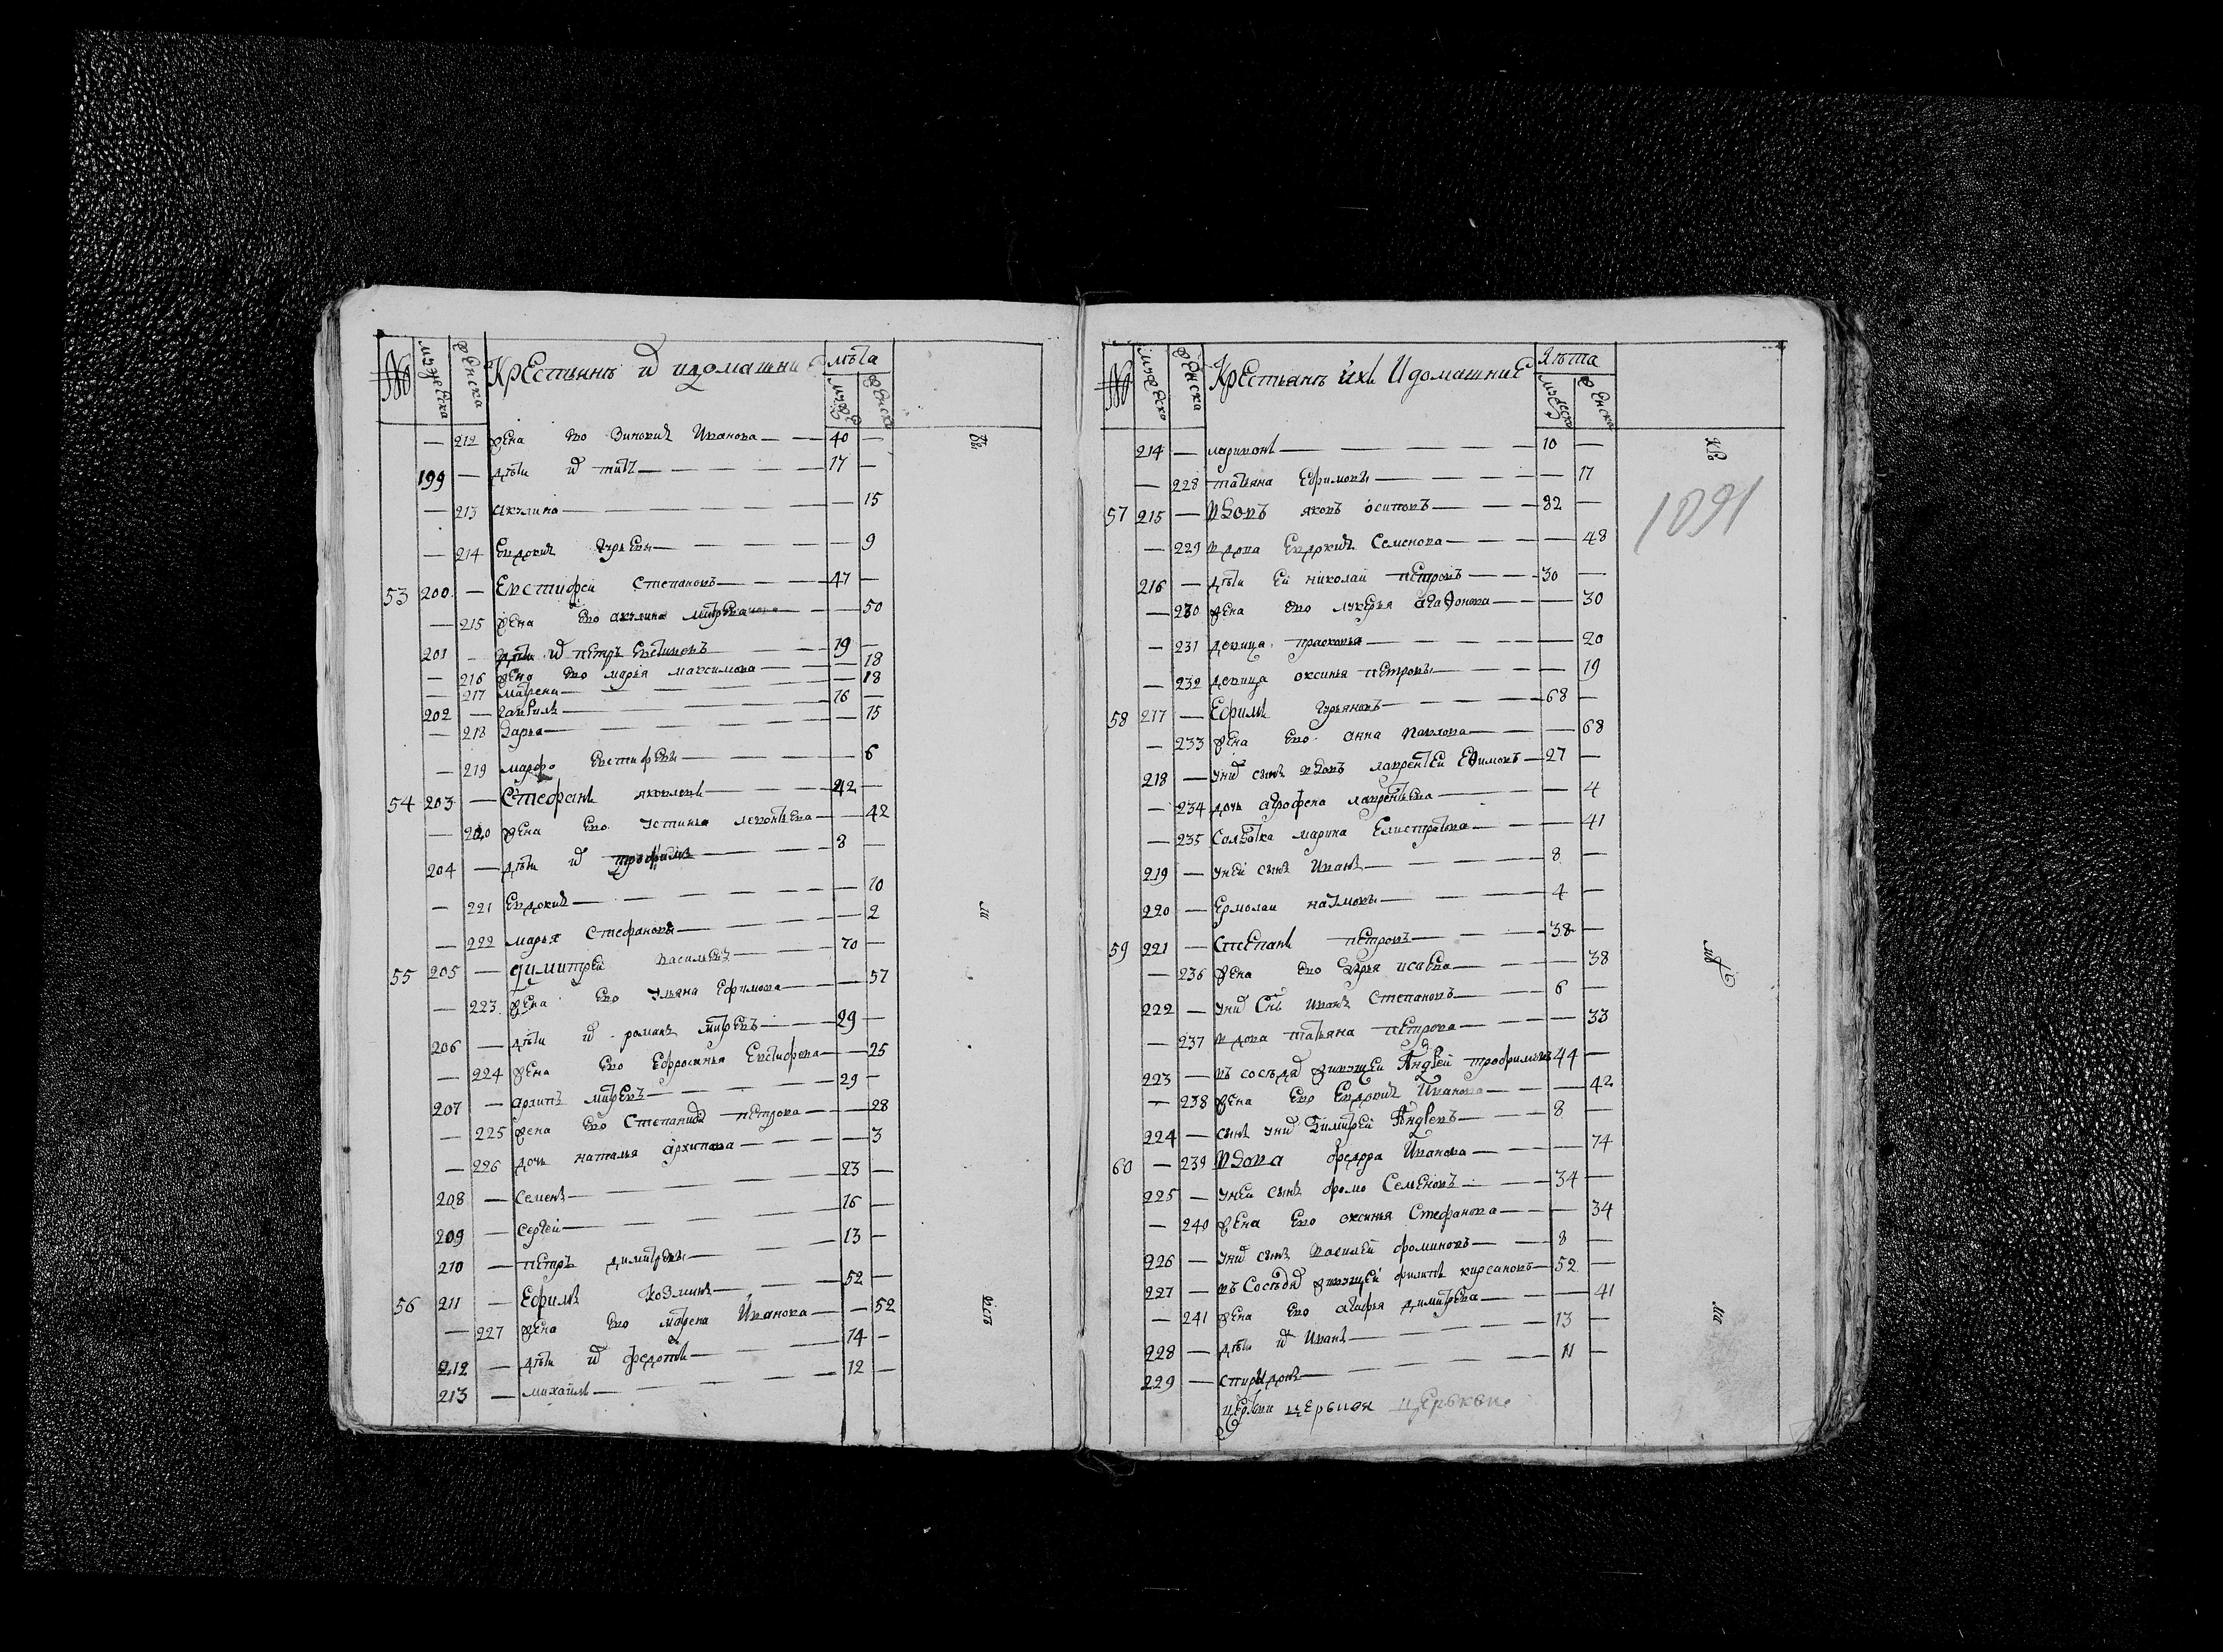 № мужеска женска Крестьянъ их и домашни лѣта мужес женска
— 212 жена ево Зиновия Иванова — 40 —
199 — дѣти их титъ — 17 —
— 213 акулина — — 15
— 214 Евдокия Гурьевы — — 9
53 200 — Евстифей Степановъ — 47 —
— 215 жена ево акулина — — 50
201 — дѣти их петръ Евстифеевъ — 19 —
— 216 жена ево марья максимова — — 18
— 217 матрена — — 18
202 — Гаврилъ — 16 —
— 218 Дарья — — 15
— 219 марфа Евстифевы — — 6
54 203 — Стефанъ яковлевъ — 42 —
— 220 жена ево устинья леонтьева — — 42
204 — дѣти их трофимъ — 8 —
— 221 Евдокия — — 10
— 222 марья Стефановы — — 2
55 205 — димитрей васильевъ — 70 —
— 223 жена ево ульяна Ефимова — — 57
206 — дѣти их романъ митревъ — 29 —
— 224 жена ево Ефросинья Евстифева — — 25
207 — архипъ митревъ — 29 —
— 225 жена ево Степанида петрова — — 28
— 226 дочь наталья архипова — — 3
208 — Семенъ — 23 —
209 — Сергей — 16 —
210 — петръ димитревы — 13 —
56 211 — Ефимъ Козминъ — 52 —
— 227 жена ево матрена Иванова — — 52
212 — дѣти их федотъ — 14 —
213 — михаилъ — 12 —
ли
№ мужеско женска Крестьянъ ихъ И домашние Лѣта мужеска женска
214 — ларионъ — 10 —
— 228 татьяна Ефимовы — — 17
1091
57 215 — вдовъ яковъ осиповъ — 82 —
— 229 вдова Евдокия Семенова — — 48
216 — дѣти Ей николай петровъ — 30 —
— 230 жена ево лукерья агафонова — — 30
— 231 девица прасковья — — 20
— 232 девица оксинья петровы — — 19
58 217 — Ефимъ Гурьяновъ — 68 —
— 233 жена ево анна Павлова — — 68
218 — у них сынъ вдовъ лаврентей Ефимовъ — 27 —
— 234 дочь агрофена лаврентьева — — 4
— 235 Солдатка марина Елистратова — — 41
219 — у ней сынъ Иванъ — 8 —
220 — Ермолаи наумовы — 4 —
59 221 — Степанъ петровъ — 38 —
— 236 жена ево дарья исаева — — 38
222 — у них Снъ Иванъ Степановъ — 6 —
— 237 вдова татьяна петрова — — 33
223 — въ сосѣдях живущей Андрей трофимовъ 44 —
— 238 жена ево Евдокия Иванова — — 42
224 — сынъ у них Димитрей Андревъ — 8 —
60 — 239 вдова федора Иванова — — 74
225 — у ней сынъ фома Семеновъ — 34 —
— 240 жена ево оксинья Стефанова — — 34
226 — у них сынъ василей фоминовъ — 8 —
227 — въ Сосѣдях живущей филипъ кирсановъ — 52 —
— 241 жена ево агафья димитрева — — 41
228 — дѣти их Иванъ — 13 —
229 — спиридонъ — 11 —
церькви